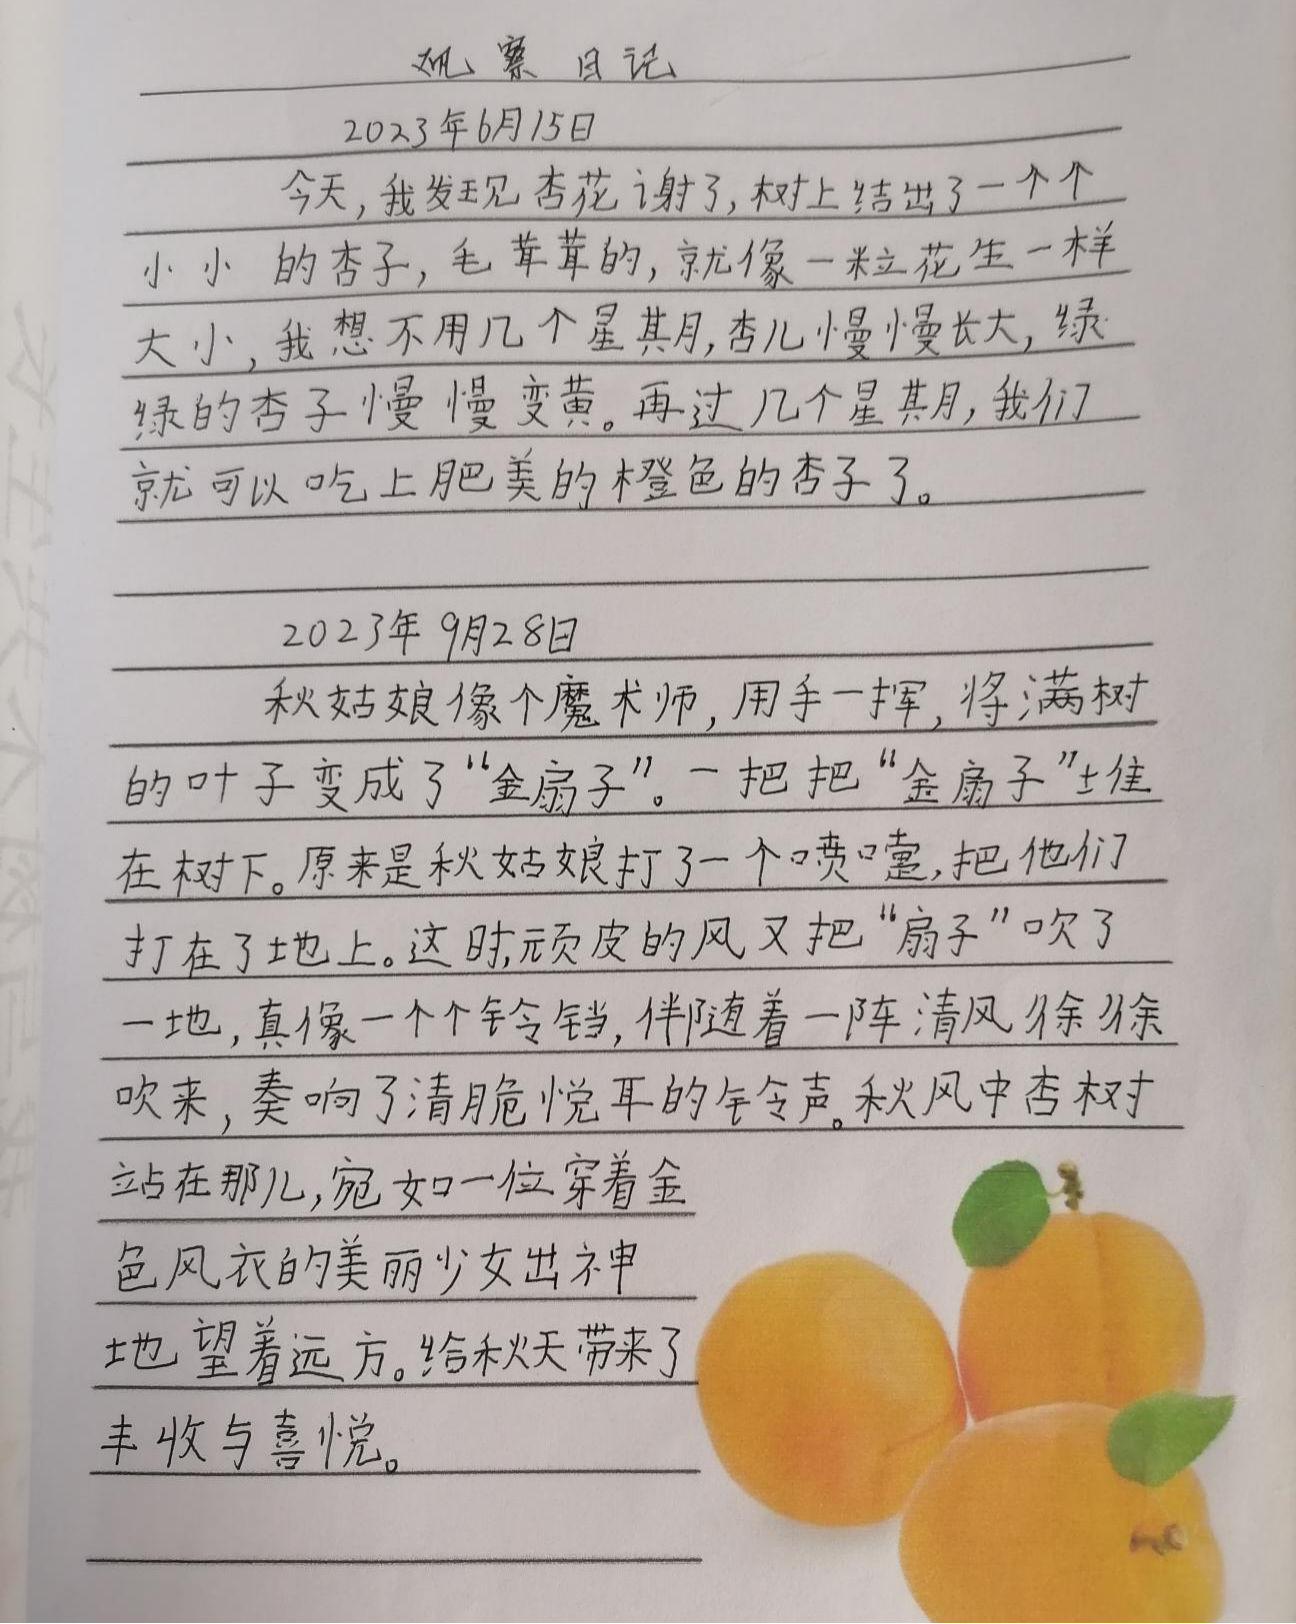 观察日记
2023年6月15日
今天,我发现杏花谢了,树上结出了一个个
小小的杏子,毛茸茸的,就像一粒花生一样
大小,我想不用几个星期,杏儿慢慢长大,绿
绿的杏子慢慢变黄。再过几个星期,我们
就可以吃上肥美的橙色的杏子了。
2023年9月28日
秋姑娘像个魔术师,用手一挥,将满树
的叶子变成了“金扇子”。一把把“金扇子”堆
在树下。原来是秋姑娘打了一个喷嚏,把他们
打在了地上。这时,顽皮的风又把“扇子”吹了
一地,真像一个个铃铛,伴随着一阵清风徐徐
吹来,奏响了清脆悦耳的铃声。秋风中杏树
站在那儿,宛如一位穿着金
色风衣的美丽少女出神
地望着远方。给秋天带来了
丰收与喜悦。